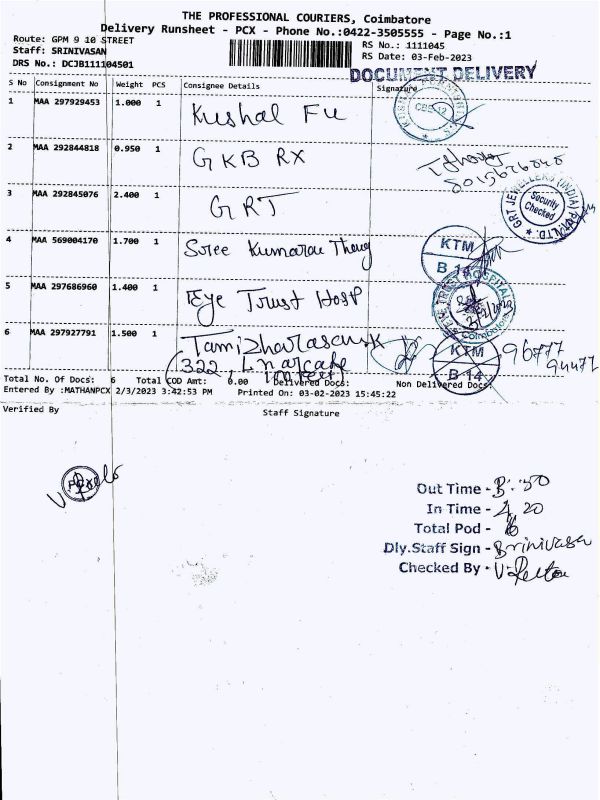 THE PROFESSIONAL COURIERS, Coimbatore
Delivery Runsheet - PCX - Phone No.:0422-3505555 - Page No.:1
Route: GPM 9 10 STREET
RS No.: 1111045
Staff: SRINIVASAN
RS Date: 03-Feb-2023
DRS No.: DCJB111104501
DOCUMENT DELIVERY
S No Consignment No Weight PCS Consignee Details Signature
1 MAA 297929453 1.000 1 Kushal Fu
2 MAA 292844818 0.950 1 GKB RX
3 MAA 292845076 2.400 1 GRT
GRT JEWELLERS (INDIA) PVT. LTD.
Security
Checked
4 MAA 569004170 1.700 1 Sree Kumaran Thang
KTM
B 14
5 MAA 297686960 1.400 1 Eye Trust Hosp
6 MAA 297927791 1.500 1 Tamizharasan K
(322,
KTM
B-14
96777
94477
Total No. Of Docs: 6 Total COD Amt: 0.00 Delivered Docs: Non Delivered Docs:
Entered By :MATHANPCX 2/3/2023 3:42:53 PM Printed On: 03-02-2023 15:45:22
Verified By Staff Signature
Out Time -
In Time - 4 20
Total Pod - 6
Dly.Staff Sign - Srinivasan
Checked By -